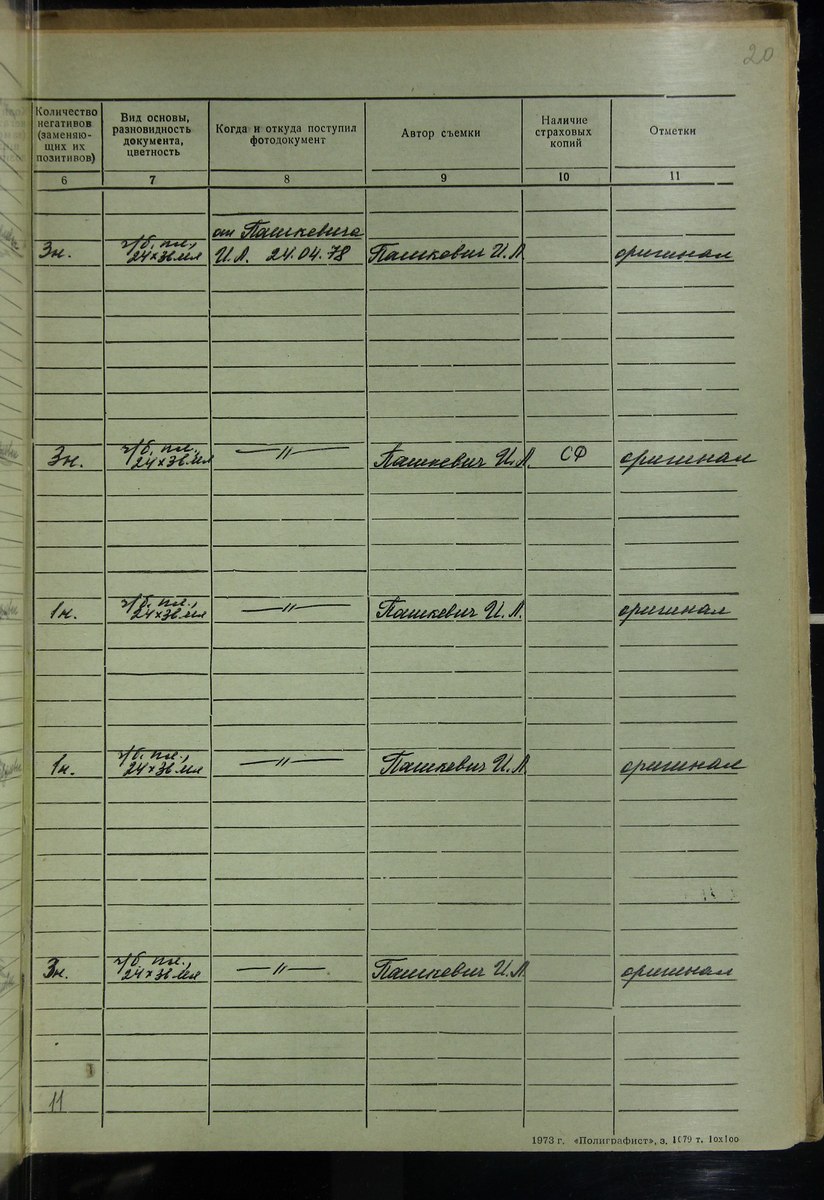 20
Количество негативов (заменяю- щих их позитивов) | Вид основы, разновидность документа, цветность | Когда и откуда поступил фотодокумент | Автор съемки | Наличие страховых копий | Отметки
6 | 7 | 8 | 9 | 10 | 11
от Пашкевича
3н. | ч/б, пл., 24×36 мм | И.Л. 24.04.78 | Пашкевич И.Л. | оригинал
3н. | ч/б, пл., 24×36 мм | —〃— | Пашкевич И.Л. | СФ | оригинал
1н. | ч/б, пл., 24×36 мм | —〃— | Пашкевич И.Л. | оригинал
1н. | ч/б, пл., 24×36 мм | —〃— | Пашкевич И.Л. | оригинал
3н. | ч/б, пл., 24×36 мм | —〃— | Пашкевич И.Л. | оригинал
11
1973 г. «Полиграфист», з. 1079 т. 10х100